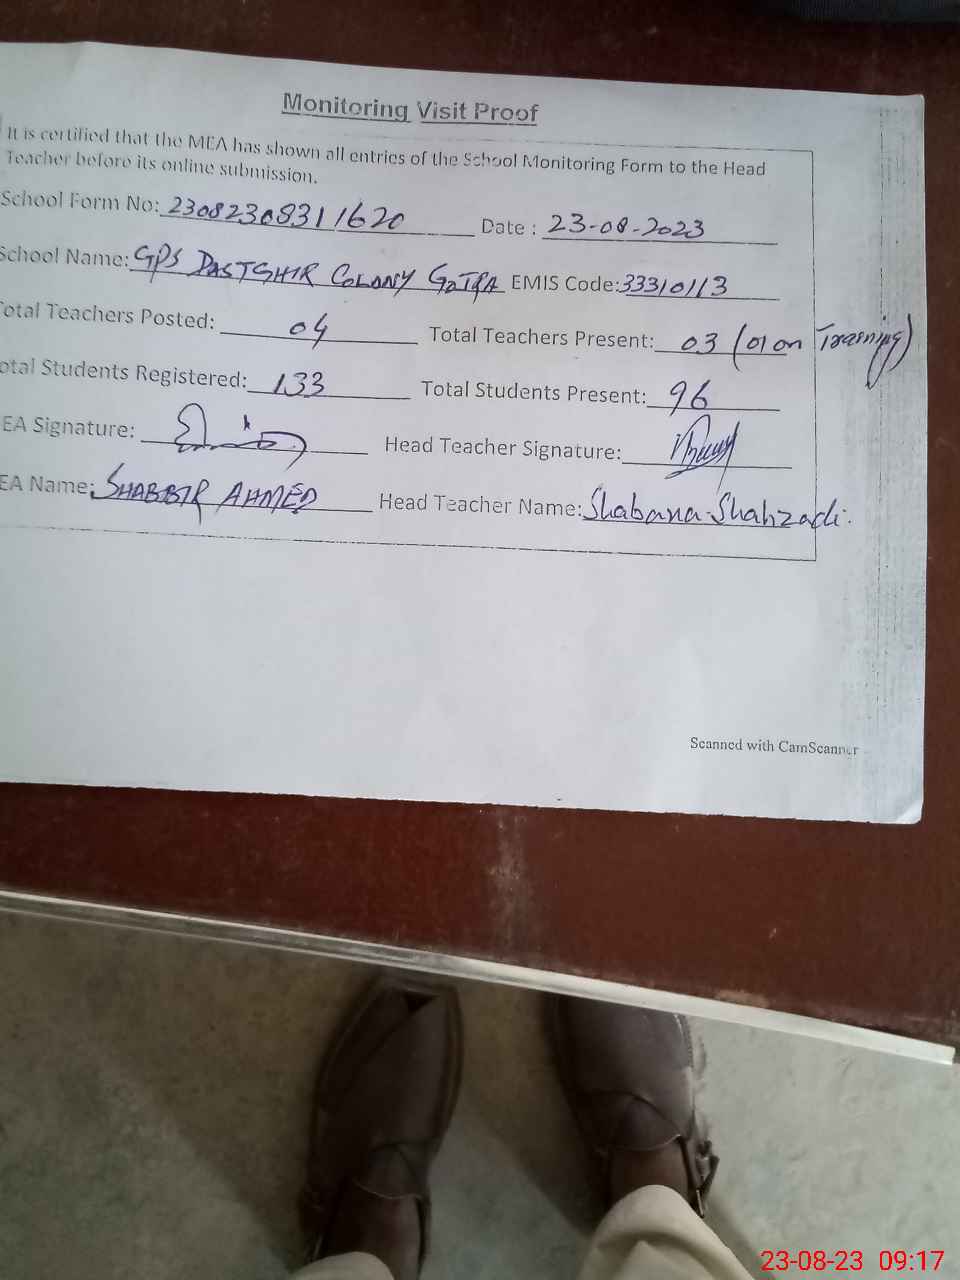 Monitoring Visit Proof
It is certified that the MEA has shown all entries of the School Monitoring Form to the Head
Teacher before its online submission.
School Form No: 23082308311620 Date : 23-08-2023
School Name: GPS DASTGHIR COLONY GOTRA EMIS Code: 33310113
otal Teachers Posted: 04 Total Teachers Present: 03 (01 on Training)
otal Students Registered: 133 Total Students Present: 96
EA Signature: Head Teacher Signature:
EA Name: SHABBIR AHMED Head Teacher Name: Shabana Shahzadi.
Scanned with CamScanner
23-08-23 09:17